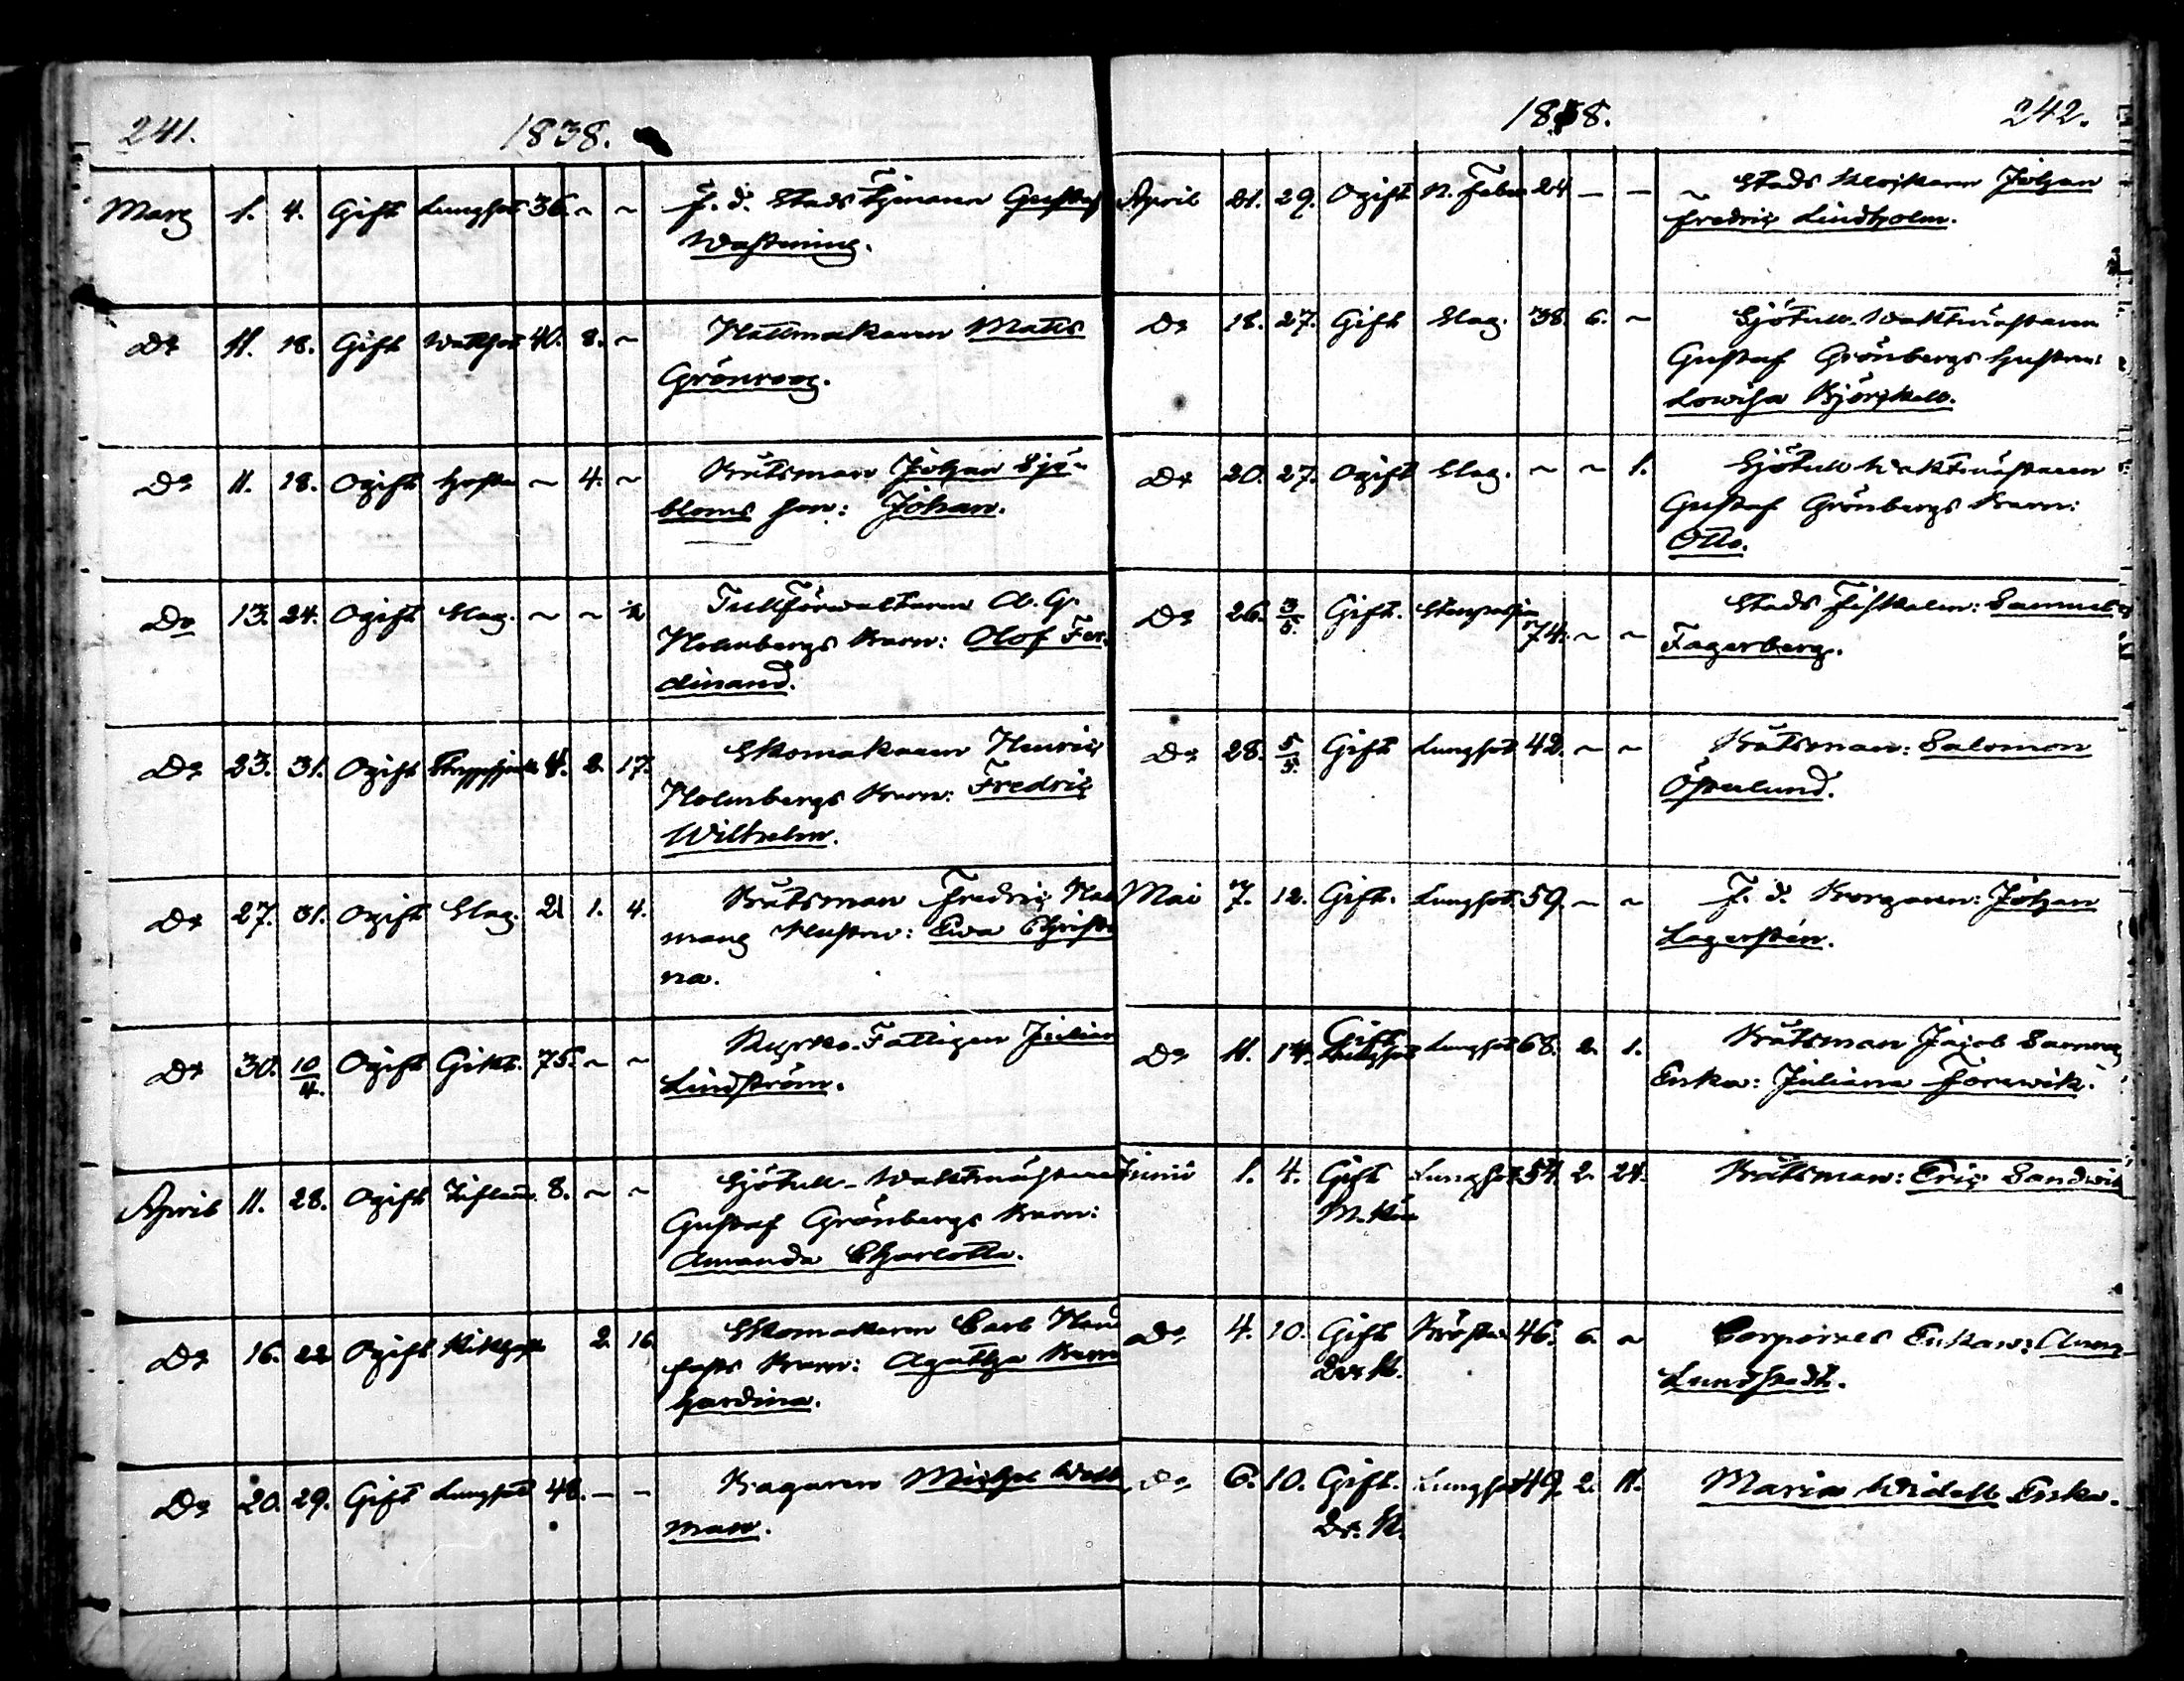 241. 1838.
Mars 1. 4. Gift Lungsot 36. ~ ~ F. d. Stads Tjenaren Gustaf
Wastning.
Do 11. 18. Gift Wattsot 40. 8. ~ Hattmakaren Matts
Grönroos.
Do 11. 18. Ogift Hosta ~ 4. ~ Båtsman Johan Sjö-
bloms son: Johan.
Do 13. 24. Ogift Slag. ~ ~ ½ Tullförwaltaren A. G.
Holmbergs Barn: Olof Fer-
dinand.
Do 23. 31. Ogift 4. 2. 17. Skomakaren Henric
Holmbergs Barn: Fredric
Wilhelm.
Do 27. 31. Ogift Slag. 21 1. 4. Båtsman Fredric
Hustru: Ewa Christi
na.
Do 30. 10/4. Ogift Gikt. 75. ~ ~ Kyrko-Fattigen
Lindström.
April 11. 28. Ogift 8. ~ ~ Sjötull-Waktmästaren
Gustaf Grönbergs Barn:
Amanda Charlotta.
Do 16. 22 Ogift Kikhosta 2. 16 Skomakaren Carl
Barn: Agatha Bern
hardina.
Do 20. 29. Gift Lungsot 48. — — Bagaren Michel Well
man.
1838. 242.
April 21. 29. Ogift N. Feber 24 — — Stads Johan
Fredric Lindholm.
Do 18. 27. Gift Slag. 38. 6. ~ Sjötull-Waktmästaren
Gustaf Grönbergs Hustru:
Lowisa Björkell.
Do 20. 27. Ogift Slag. ~ ~ 1. Sjötull Waktmästaren
Gustaf Grönbergs Barn:
Otto.
Do 26. 3/5. Gift. 74. ~ ~ Stads Fiskalen: Samuel
Fagerberg.
Do 28. 5/5. Gift Lungsot 42. ~ ~ Båtsman: Salomon
Österlund.
Mai 7. 12. Gift. Lungsot 59. ~ ~ F. d. Borgaren: Johan
Lagerstén.
Do 11. 14. Gift Lungsot 68. 2. 1. Båtsman Jacob
Enka: Juliana Forswik.
Junii 1. 4. Gift Lungsot 54. 2. 24. Båtsman: Eric Sandwik
Do 4. 10. Gift 46. 6. ~ Corporals Enkan: Anna
Lundstedt.
Do 6. 10. Gift. Lungsot 49. 2. 11. Maria Widell Enka.